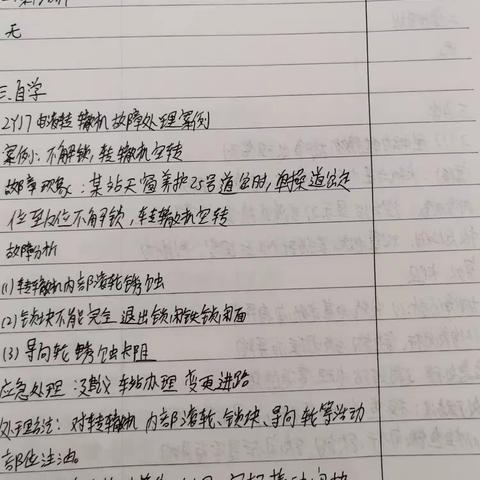 无
三.自学
ZYJ7电液转辙机故障处理案例
案例1:不解锁,转辙机空转
故障现象:某站天窗养护25号道岔时,单操道岔定
位至反位不解锁,转辙机空转
故障分析
(1)转辙机内部滚轮锈蚀
(2)锁块不能完全退出锁闭铁锁闭面
(3)导向轮锈蚀卡阻
应急处理:建议车站办理变更进路
处理方法:对转辙机内部滚轮、锁块、导向轮等活动
部位注油。